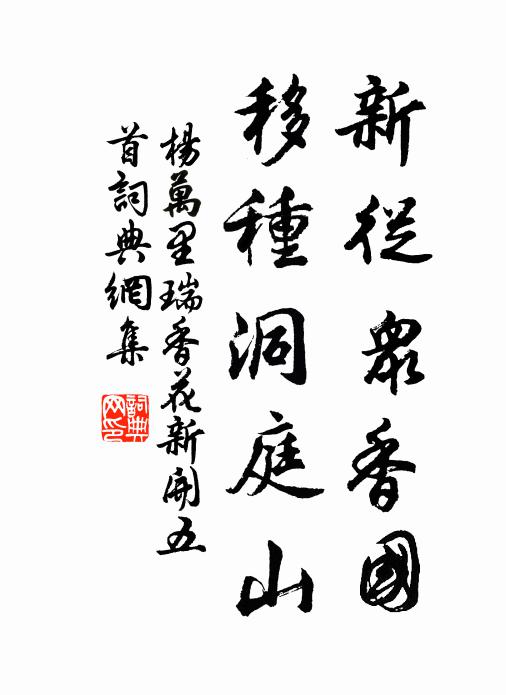 新從衆香國
移種洞庭山
楊萬里瑞香花新開五
首詞典網集
詞典网印